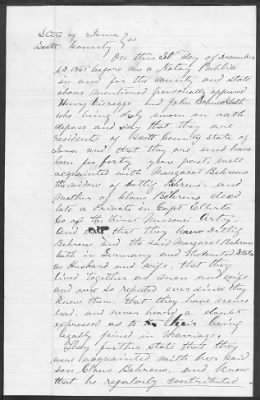 State of Iowa }
Scott County } ss
On this 30th day of December
A.D. 1865 before me a Notary Public
in and for the county and State
above mentioned personally appeared
Henry and John
who being duly sworn on oath
depose and say that they are
residents of Scott County State of
Iowa and that they are and have
been for forty years past well
acquainted with Margaret Behrens
the widow of Detlef Behrens and
mother of Claus Behrens dead
late a Private in Capt
Co of the third Missouri Arty.
and that they knew Detlef
Behrens and the said Margaret Behrens
both in Germany and the United States
as husband and wife, that they
lived together as husband and wife
and was so reputed ever since they
knew them. that they have never
had and never heard a doubt
expressed as to their being
legally joined in marriage.
They further state that they
were acquainted with her said
son Claus Behrens, and know
that he regularly contributed